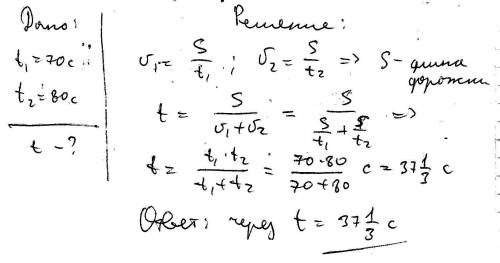 Дано:
t₁=70с
t₂=80с
t-?
Решение:
υ₁= S/t₁ ; υ₂= S/t₂ => S - длина
дорожки
t = S/(υ₁+υ₂) = S/(S/t₁ + S/t₂) =>
t = (t₁·t₂)/(t₁+t₂) = (70·80)/(70+80) с = 37 1/3 с
Ответ: через t = 37 1/3 с